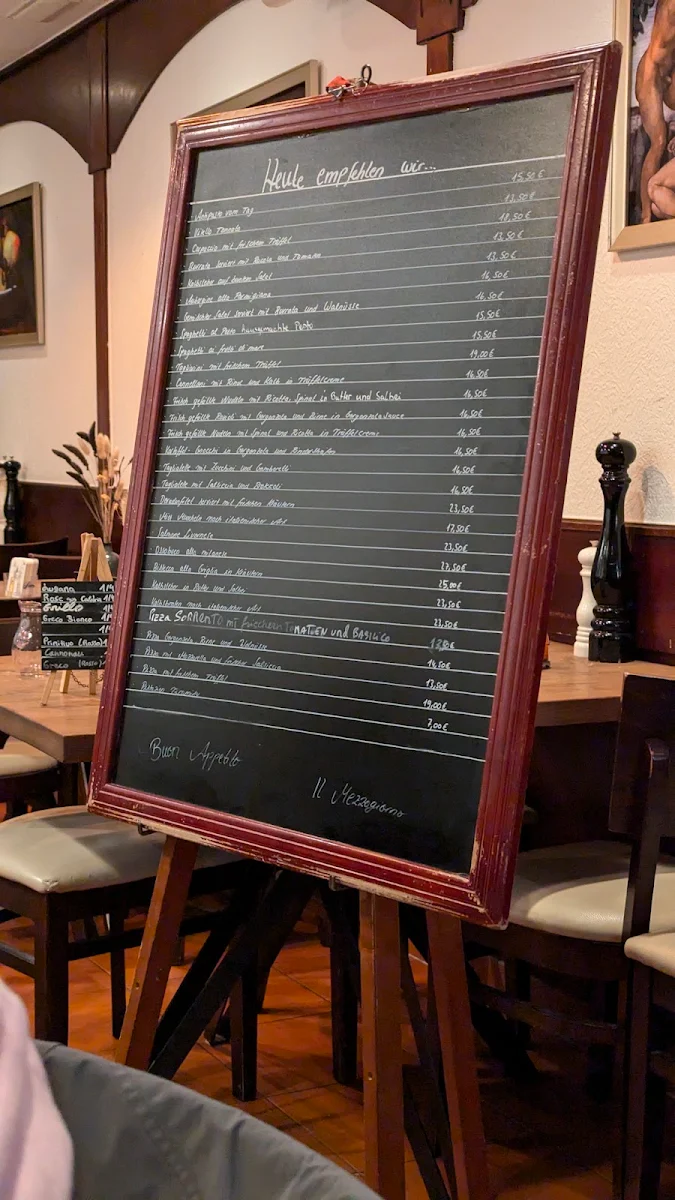 Heute empfehlen wir...
- Antipasto vom Tag 15,50€
Vitello Tonnato 13,50€
Carpaccio mit frischem Trüffel 18,50€
- Burrata serviert mit Rucola und Tomaten 13,50€
Kalbsleber auf buntem Salat 13,50€
- Aubergine alla Parmigiana 14,50€
Gemischter Salat serviert mit Burrata und Walnüsse 14,50€
- Spaghetti al Pesto hausgemachte Pesto 15,50€
- Spaghetti ai frutti di mare 15,50€
- Tagliolini mit frischem Trüffel 19,00€
- Cannelloni mit Rind und Kalb in Trüffelcreme 14,50€
- Frisch gefüllte Nudeln mit Ricotta, Spinat in Butter und Salbei 14,50€
Frisch gefüllte Ravioli mit Gorgonzola und Birne in Gorgonzolasauce 14,50€
Frisch gefüllte Nudeln mit Spinat und Ricotta in Trüffelcreme 14,50€
Kartoffel-Gnocchi in Gorgonzola und 14,50€
Tagliatelle mit Zucchini und Gamberelli 14,50€
Tagliatelle mit Salsiccia und Broccoli 14,50€
serviert mit frischen Kräutern 23,50€
nach italienischer Art 17,50€
Salmone Livornese 23,50€
- Ossobuco alla milanese 27,50€
Bistecca alla Griglia in Kräutern 25,00€
Kalbsleber in Butter und Salbei 23,50€
nach italienischer Art 23,50€
PIZZA SORRENTO mit frischem TOMATEN und BASILICO
Pizza Gorgonzola Birne und Walnüsse 14,50€
Pizza mit Mozzarella und frischer Salsiccia 13,50€
Pizza mit frischem Trüffel 19,00€
Tiramisu 7,00€
Buon Appetito
Il Mezzogiorno
Lugana 1/4
Rosé
Grillo 1/4
Greco Bianco
Primitivo (Rosso)
Cannonau
Greco (Rosso)